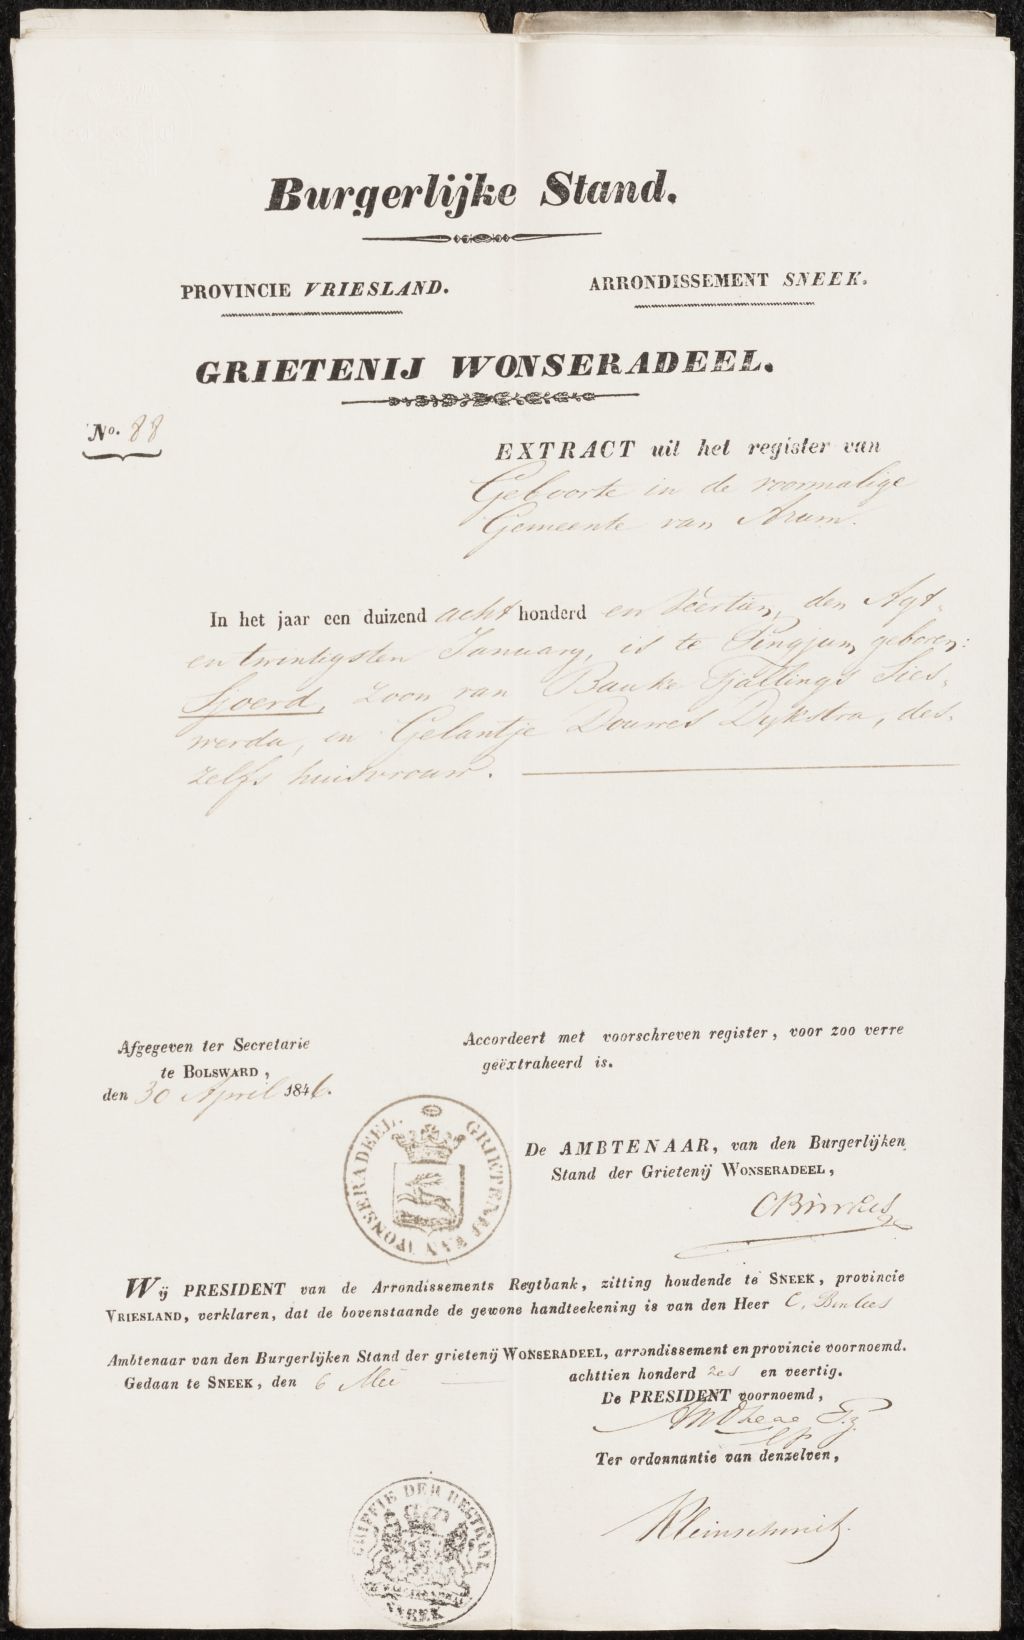 Burgerlijke Stand.
PROVINCIE VRIESLAND.
ARRONDISSEMENT SNEEK.
GRIETENIJ WONSERADEEL.
No. 88
EXTRACT uit het register van
Geboorte in de voormalige
Gemeente van Arum.
In het jaar een duizend acht honderd en Veertien, den Agt-
en twintigsten January, is te Pingjum geboren:
Sjoerd, zoon van Bauke Tjallings Sies-
werda, en Gelantje Douwes Dykstra, des-
zelfs huisvrouw.
Afgegeven ter Secretarie
te BOLSWARD,
den 30 April 1846.
Accordeert met voorschreven register, voor zoo verre
geëxtraheerd is.
GRIETENIJ VAN WONSERADEEL.
De AMBTENAAR, van den Burgerlijken
Stand der Grietenij WONSERADEEL,
Wij PRESIDENT van de Arrondissements Regtbank, zitting houdende te SNEEK, provincie
VRIESLAND, verklaren, dat de bovenstaande de gewone handteekening is van den Heer C.
Ambtenaar van den Burgerlijken Stand der grietenij WONSERADEEL, arrondissement en provincie voornoemd.
Gedaan te SNEEK, den 6 Mei achttien honderd zes en veertig.
De PRESIDENT voornoemd,
Ter ordonnantie van denzelven,
Kleinschmit.
GRIFFIE DER REGTBANK
SNEEK